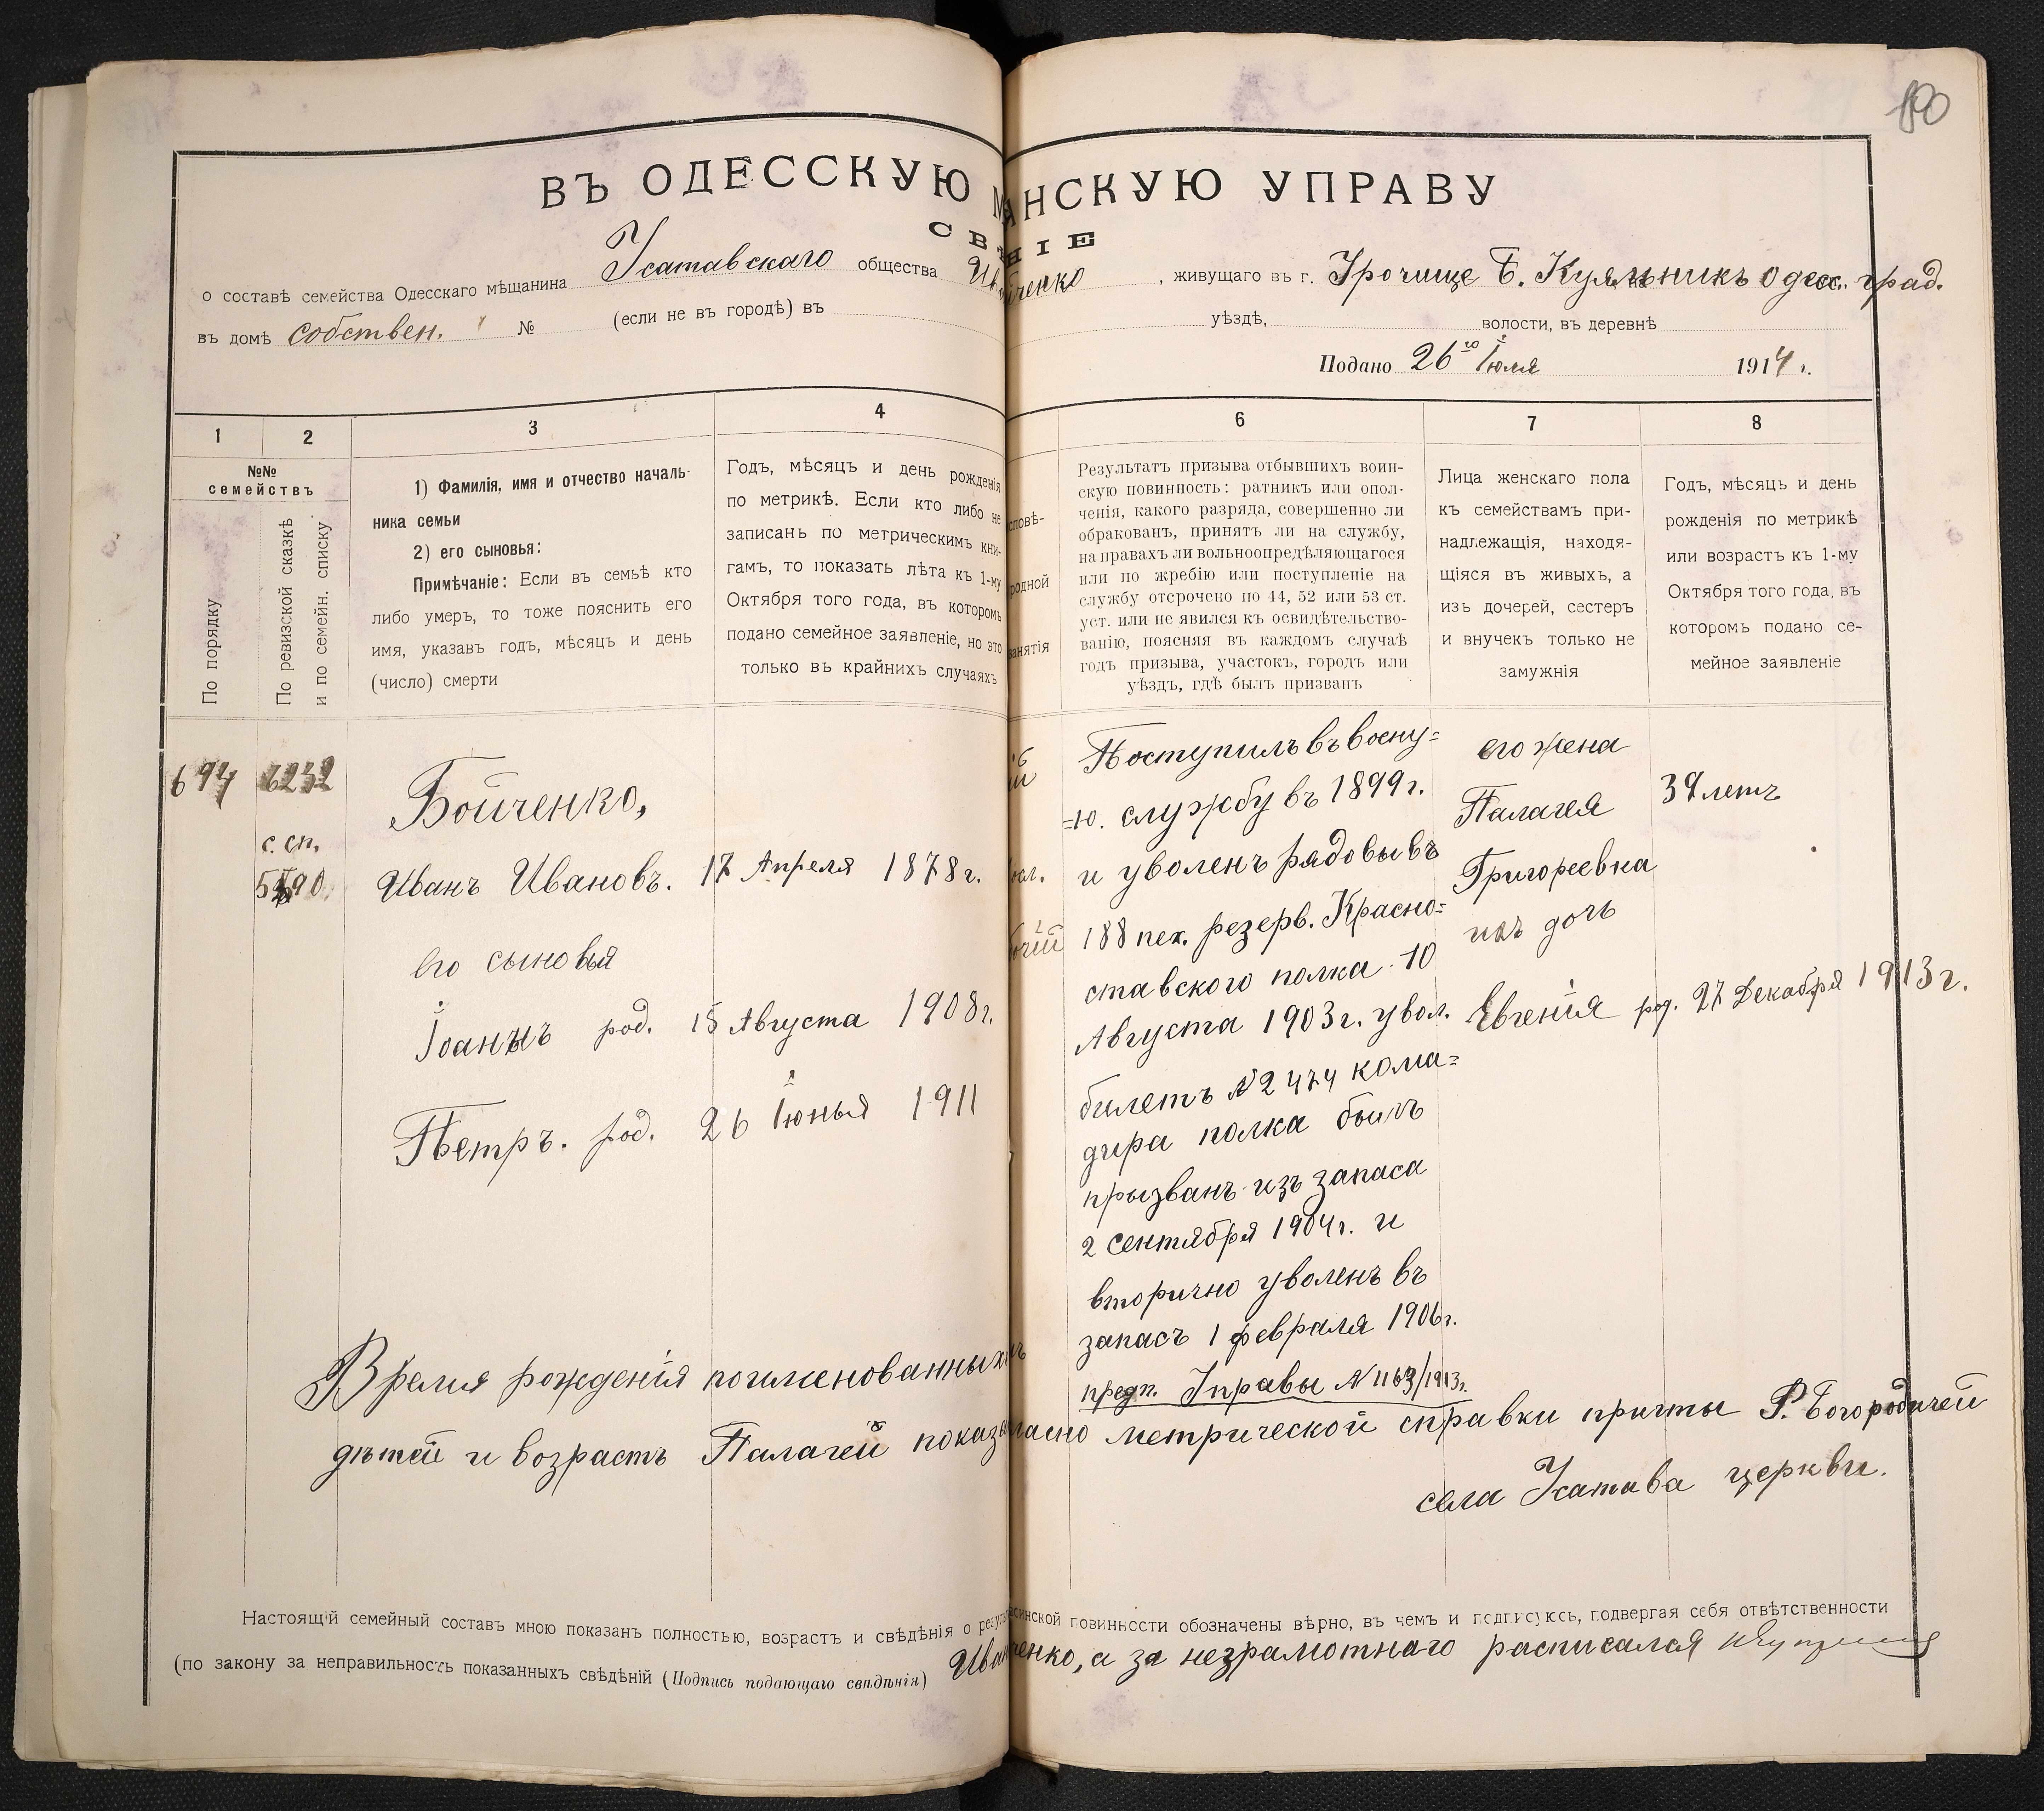 180
ВЪ ОДЕССКУЮ М АНСКУЮ УПРАВУ
СВ НІЕ
о составѣ семейства Одесскаго мѣщанина Усатавскаго общества Ив йченко , живущаго въ г. Урочище Б. Куяльникъ одесс. град.
въ домѣ собствен. № (если не въ городѣ) въ уѣздѣ, волости, въ деревнѣ
Подано 26го Іюля 1914 г.
1 2 3 4 6 7 8
№№
семействъ
По порядку
По ревизской сказкѣ
и по семейн. списку
1) Фамилія, имя и отчество началь-
ника семьи
2) его сыновья:
Примѣчаніе: Если въ семьѣ кто
либо умеръ, то тоже пояснить его
имя, указавъ годъ, мѣсяцъ и день
(число) смерти
Годъ, мѣсяцъ и день рожденія
по метрикѣ. Если кто либо не
записанъ по метрическимъ кни-
гамъ, то показать лѣта къ 1-му
Октября того года, въ которомъ
подано семейное заявленіе, но это
только въ крайнихъ случаяхъ
сповѣ-
родной
занятія
Результатъ призыва отбывшихъ воин-
скую повинность: ратникъ или опол-
ченія, какого разряда, совершенно ли
обракованъ, принятъ ли на службу,
на правахъ ли вольноопредѣляющагося
или по жребію или поступленіе на
службу отсрочено по 44, 52 или 53 ст.
уст. или не явился къ освидѣтельство-
ванію, поясняя въ каждомъ случаѣ
годъ призыва, участокъ, городъ или
уѣздъ, гдѣ былъ призванъ
Лица женскаго пола
къ семействамъ при-
надлежащія, находя-
щіяся въ живыхъ, а
изъ дочерей, сестеръ
и внучекъ только не
замужнія
Годъ, мѣсяцъ и день
рожденія по метрикѣ
или возрастъ къ 1-му
Октября того года, въ
которомъ подано се-
мейное заявленіе
694 6232
с. сп.
Бойченко,
Иванъ Ивановъ. 17 Апреля 1878 г.
его сыновья
Іоаннъ род. 15 Августа 1908 г.
Петръ. род. 26 Іюнья 1911
Поступилъ въ воену=
=ю. службу въ 1899 г.
и уволенъ рядовывъ
188 пех. резерв. Красно=
ставского полка 10
Августа 1903 г. увол.
билетъ № 2474 кома=
дира полка былъ
прызванъ изъ запаса
2 сентября 1904 г. и
вторично уволенъ въ
запасъ 1 февраля 1906 г.
предп. Управы № 1163/1913 г.
его жена
Палагея 39 летъ
Григореевка
ихъ дочь
Евгенія род. 27 Декабря 1913 г.
Время рожденія поименованныхъ
дѣтей и возрастъ Палагей показ ласно метрической справки причты Р. Богородичей
села Усатава церкви.
Настоящій семейный составъ мною показанъ полностью, возрастъ и свѣдѣнія о резуль воинской повинности обозначены вѣрно, въ чемъ и подписуюсь, подвергая себя отвѣтственности
(по закону за неправильность показанныхъ свѣдѣній (Подпись подающаго свѣдѣнія) Иван ченко, а за незрамотнаго расписалая